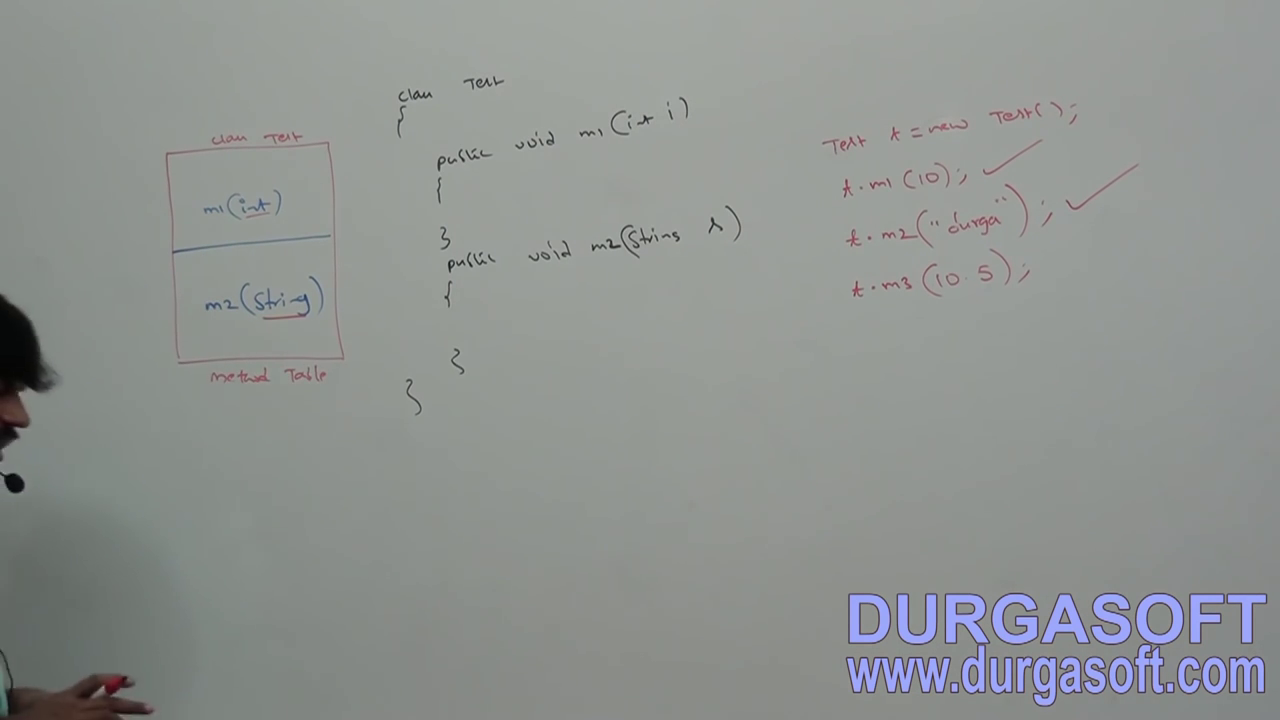 class Test
m1(int)
m2(String)
method Table
class Test
{
public void m1(int i)
{
}
public void m2(String s)
{
}
}
Test t = new Test();
t.m1(10);
t.m2("durga");
t.m3(10.5);
DURGASOFT
www.durgasoft.com